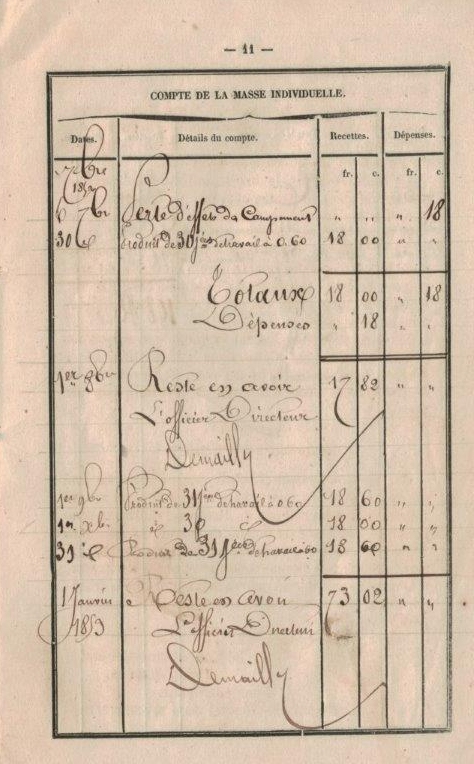 — 11 —
COMPTE DE LA MASSE INDIVIDUELLE.
Dates. Détails du compte. Recettes. Dépenses.
fr. c. fr. c.
7bre
1852
6 7bre Perte d'effets de Campement " " " 18
30 id Produit de 30 jées de travail à 0.60 18 00 " "
Totaux 18 00 " 18
Dépenses " 18 " "
1er 8bre Reste en avoir 17 82 " "
L'officier Directeur
Demailly
1er 9bre Produit de 31 jées de travail à 0 60 18 60 " "
1er xbre id 30 id 18 00 " "
31 id Produit de 31 jées de travail à 60 18 60 " "
1 Janvier à Reste en avoir 73 02 " "
1853 L'officier Directeur
Demailly